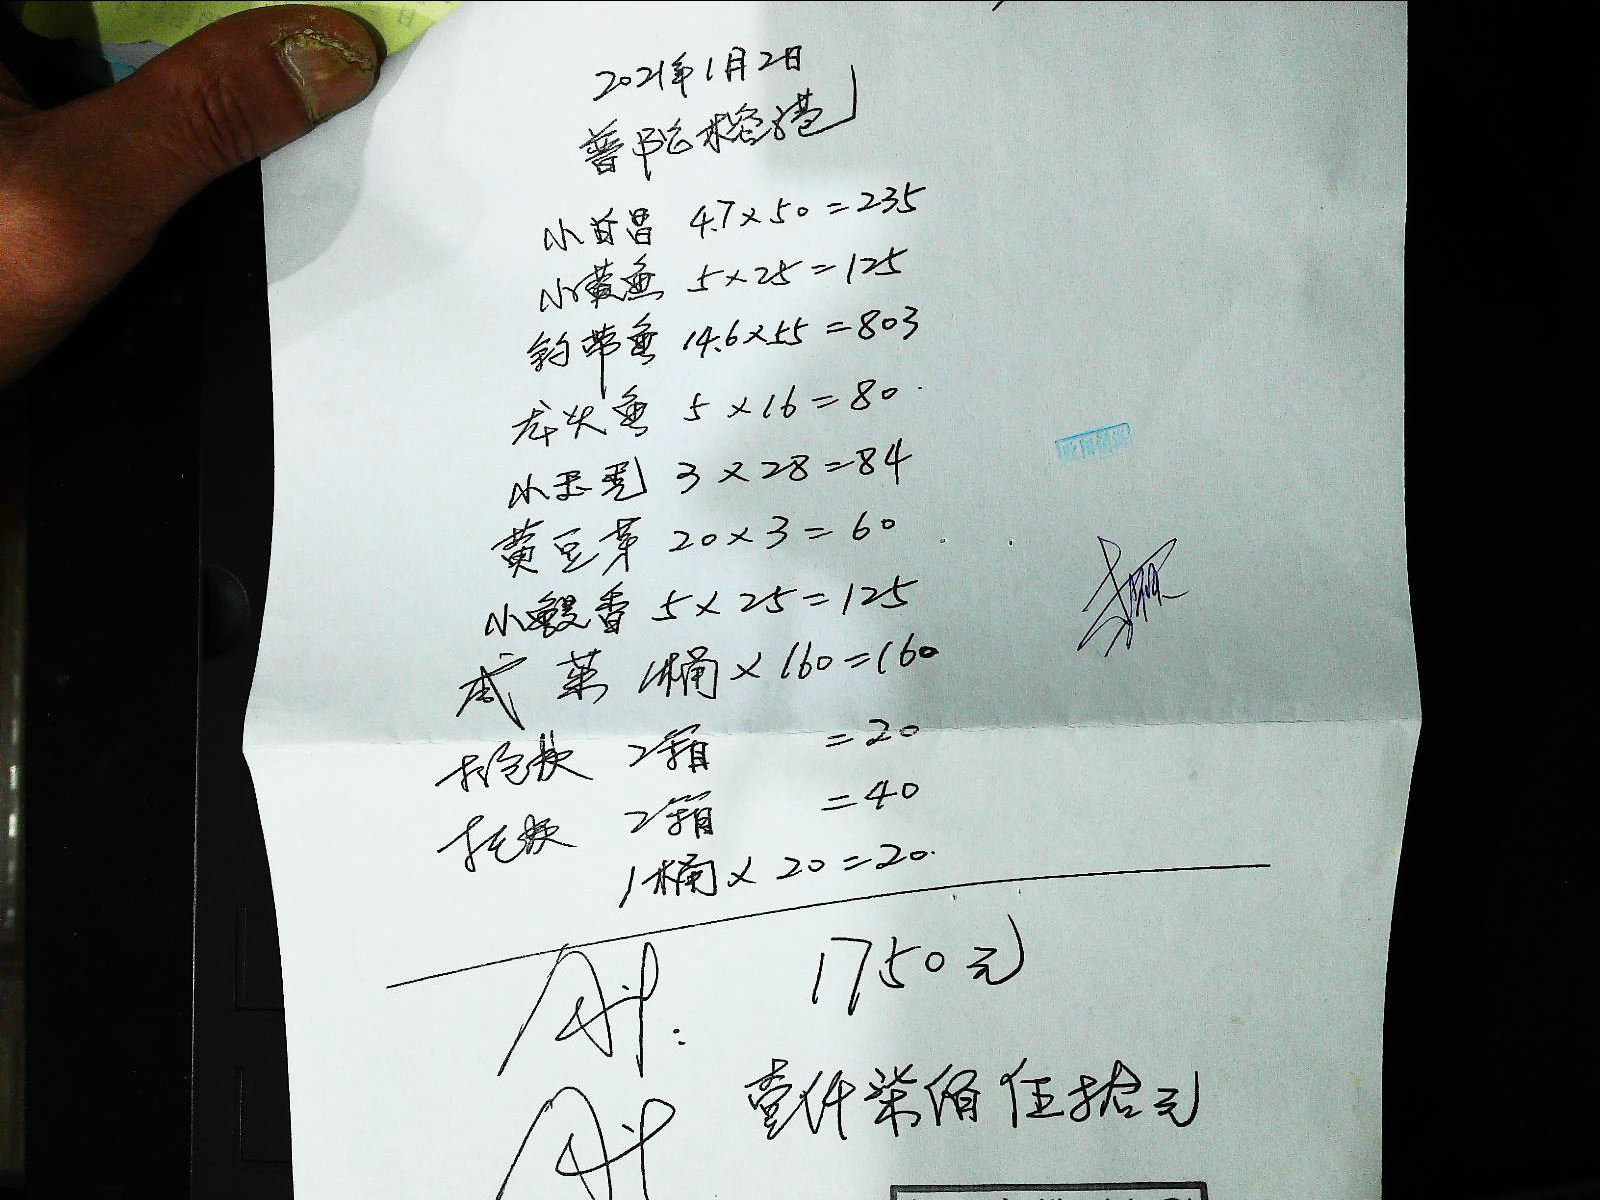 2021年1月2日
普陀榕港
小甘昌 4.7×50=235
小黄鱼 5×25=125
钓带鱼 14.6×55=803
龙头鱼 5×16=80
小 3×28=84
黄豆芽 20×3=60
小鳗香 5×25=125
咸菜 1桶×160=160
2箱 =20
2箱 =40
1桶×20=20
合计: 1750元
合计 壹仟柒佰伍拾元